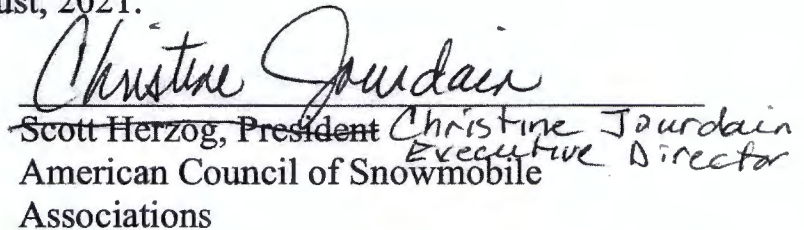 ust, 2021.
Christine Jourdain
Scott Herzog, President Christine Jourdain
Executive Director
American Council of Snowmobile
Associations